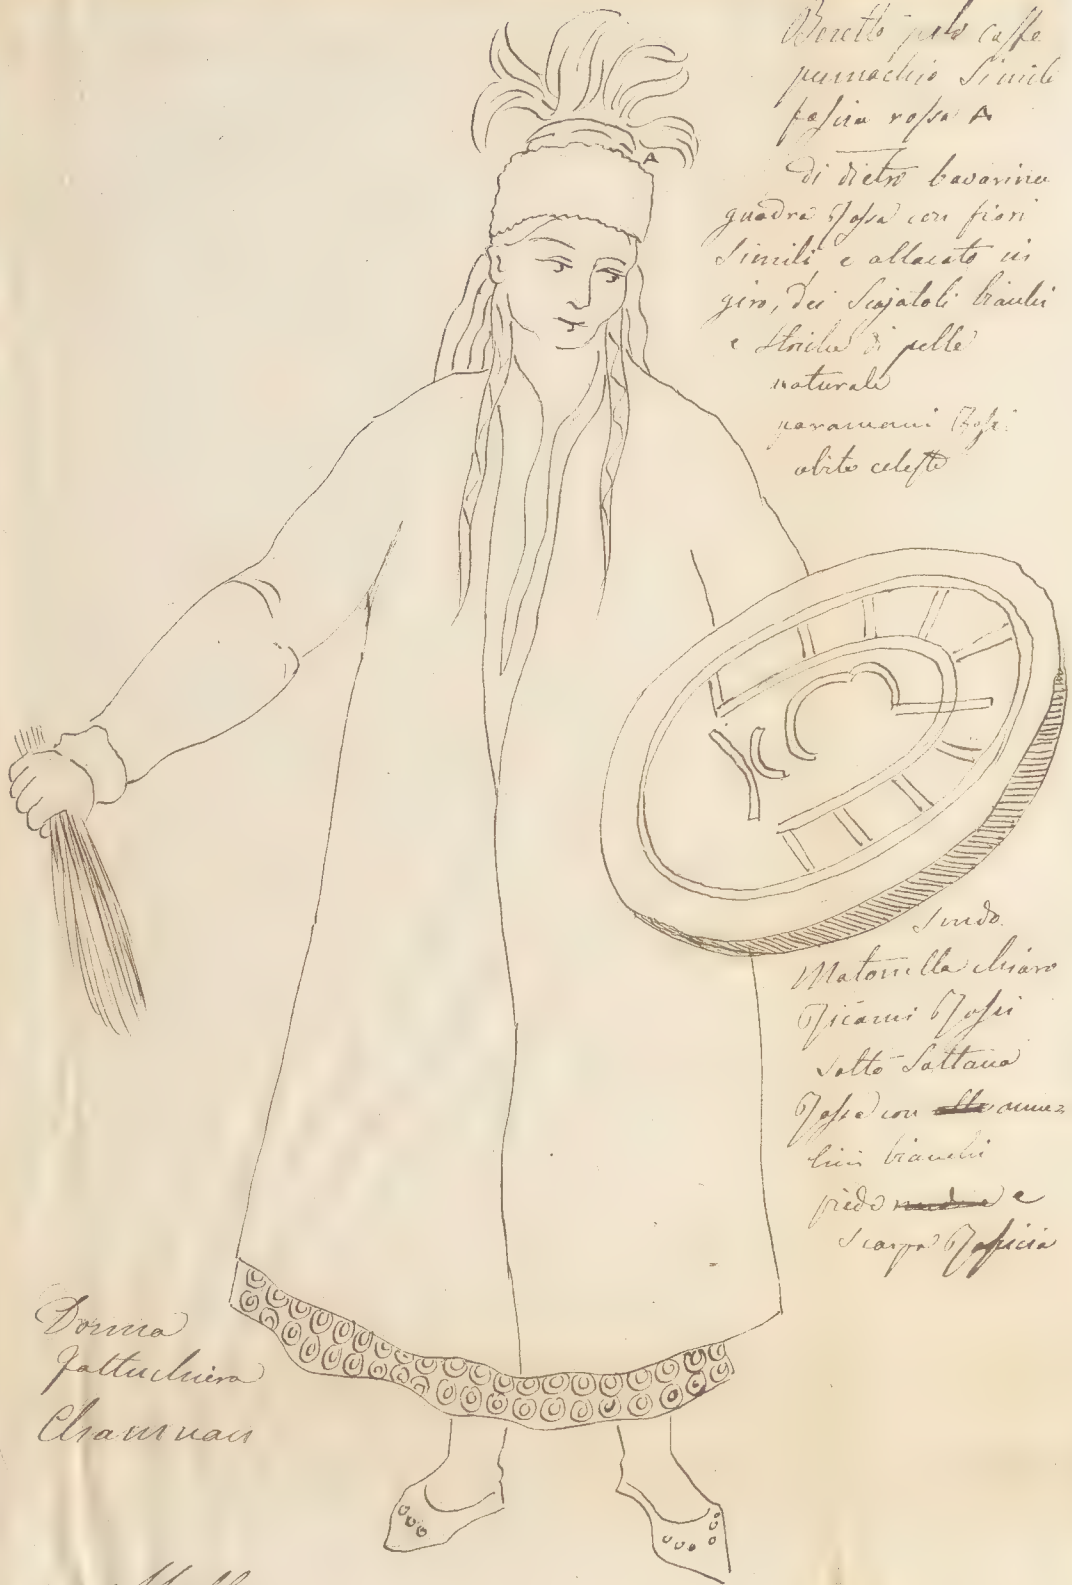 Beretto pelo caffe
pennachio simile
fascia rossa A
di dietro bavarina
quadra Rossa con fiori
simili e allacato in
giro, dei Scajatoli bianchi
e striche di pelle
naturale
paramani Rossi
abito celeste
A
scudo
Matonella chiaro
Ricami Rossi
sotto Sottana
Rossa con alle anne=
lini bianchi
piedo nudo e
scarpa Rossicia
Donna
fattuchiera
Chamman